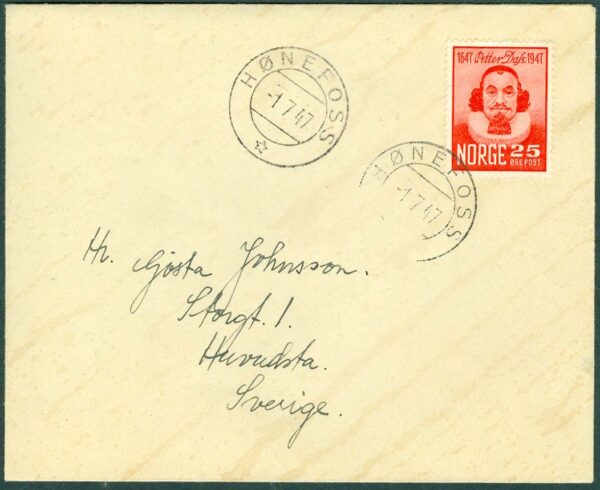 HØNEFOSS
-1 7 47
1647 Petter Dass 1947
NORGE 25
ØRE POST
HØNEFOSS
-1 7 47
Hr. Gösta Johnsson.
Storgt. 1.
Huvudsta.
Sverige.